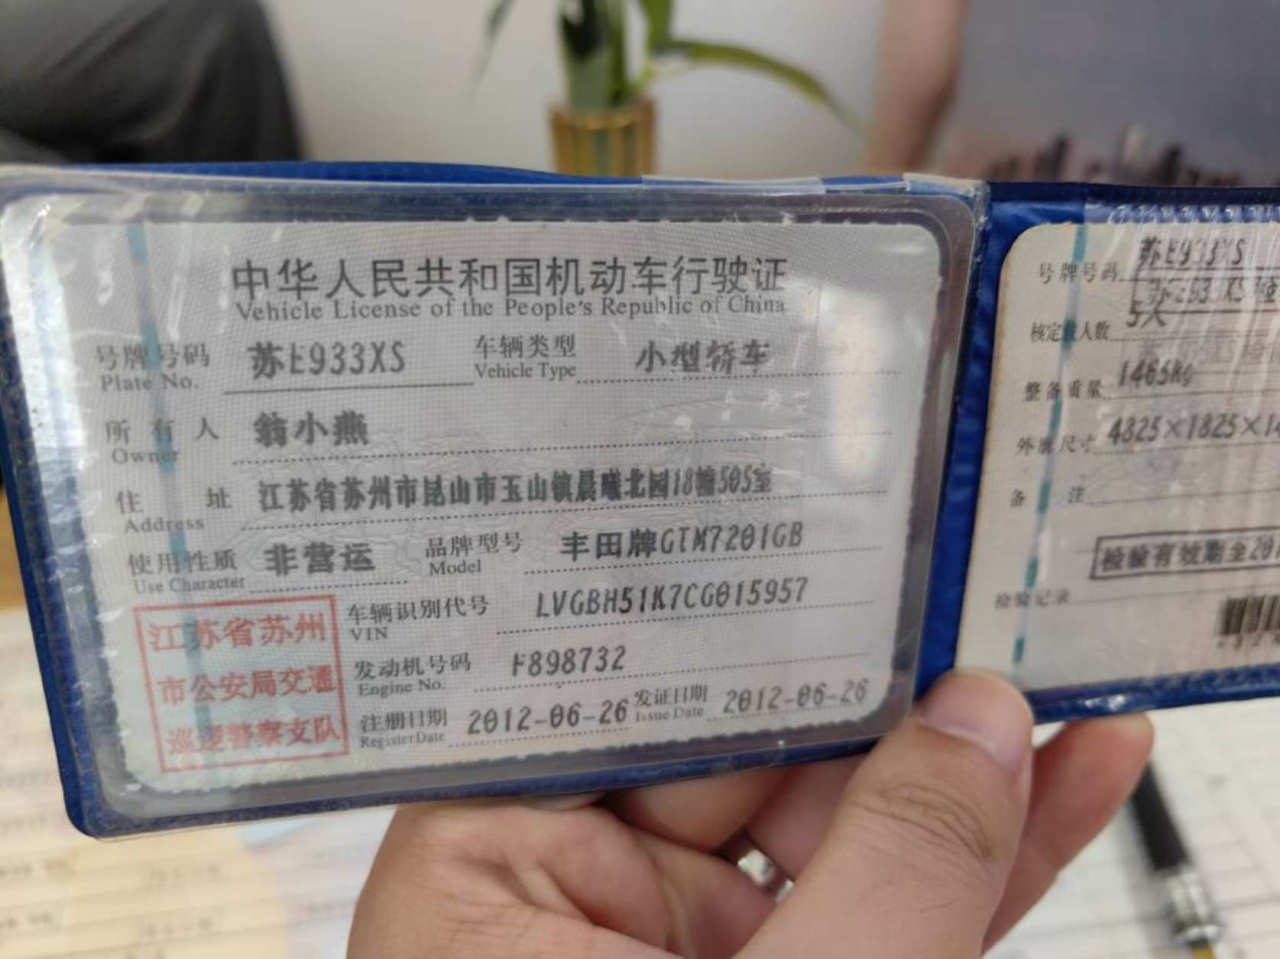 中华人民共和国机动车行驶证
Vehicle License of the People's Republic of China
号牌号码 苏E933XS 车辆类型 小型轿车
Plate No. Vehicle Type
所有人 翁小燕
Owner
住址 江苏省苏州市昆山市玉山镇晨曦北园18幢505室
Address
使用性质 非营运 品牌型号 丰田牌GTM7201GB
Use Character Model
江苏省苏州
市公安局交通
巡逻警察支队
车辆识别代号 LVGBH51K7CG015957
VIN
发动机号码 F898732
Engine No.
注册日期 2012-06-26 发证日期 2012-06-26
Register Date Issue Date
号牌号码 苏E933XS
核定载人数 5人
整备质量 1465kg
外廓尺寸 4825×1825×14
备注
检验有效期至201
检验记录